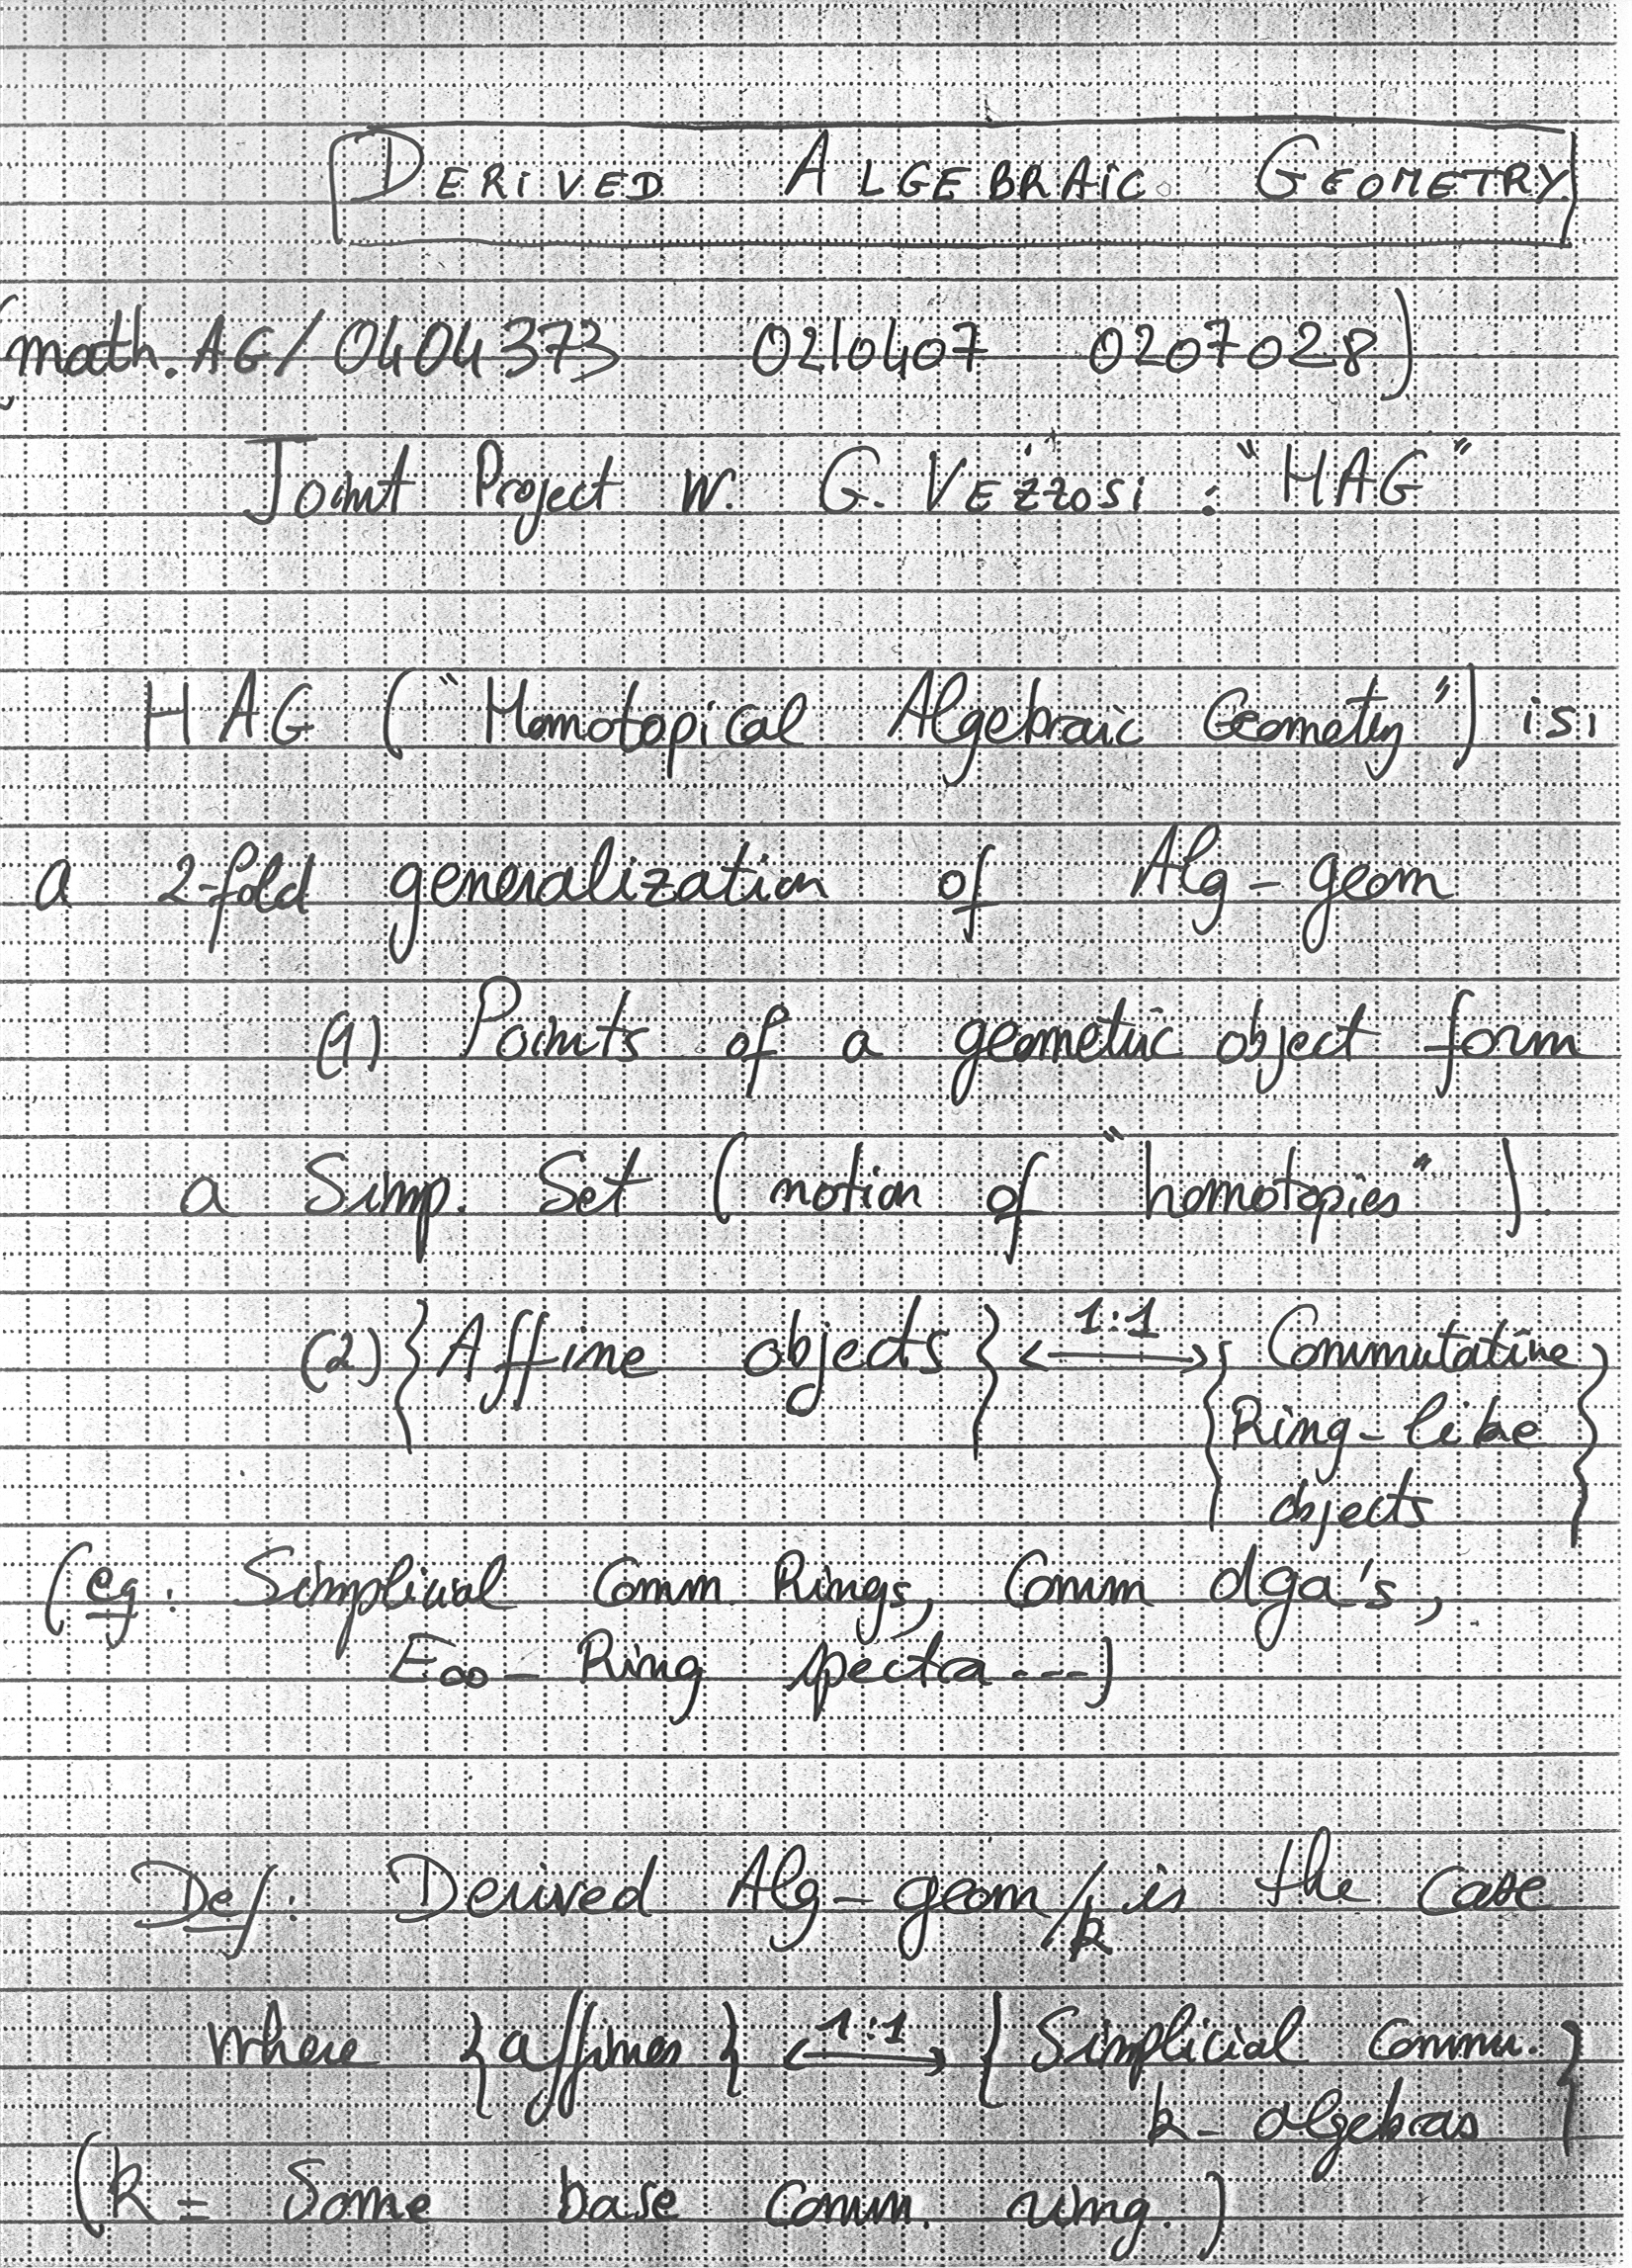 DERIVED ALGEBRAIC GEOMETRY
(math.AG/0404373 0210407 0207028)
Joint Project w. G. VEZZOSI : "HAG"
HAG ("Homotopical Algebraic Geometry") is:
a 2-fold generalization of Alg-geom
(1) Points of a geometric object form
a Simp. Set (notion of "homotopies").
(2) {Affine objects} <-1:1-> {Commutative
Ring-like
objects}
(eg: Simplicial Comm Rings, Comm dga's,
E∞-Ring spectra ---)
Def: Derived Alg-geom/k is the case
where {affines} <-1:1-> {Simplicial Commu.
k-algebras}
(k = Some base comm. ring.)